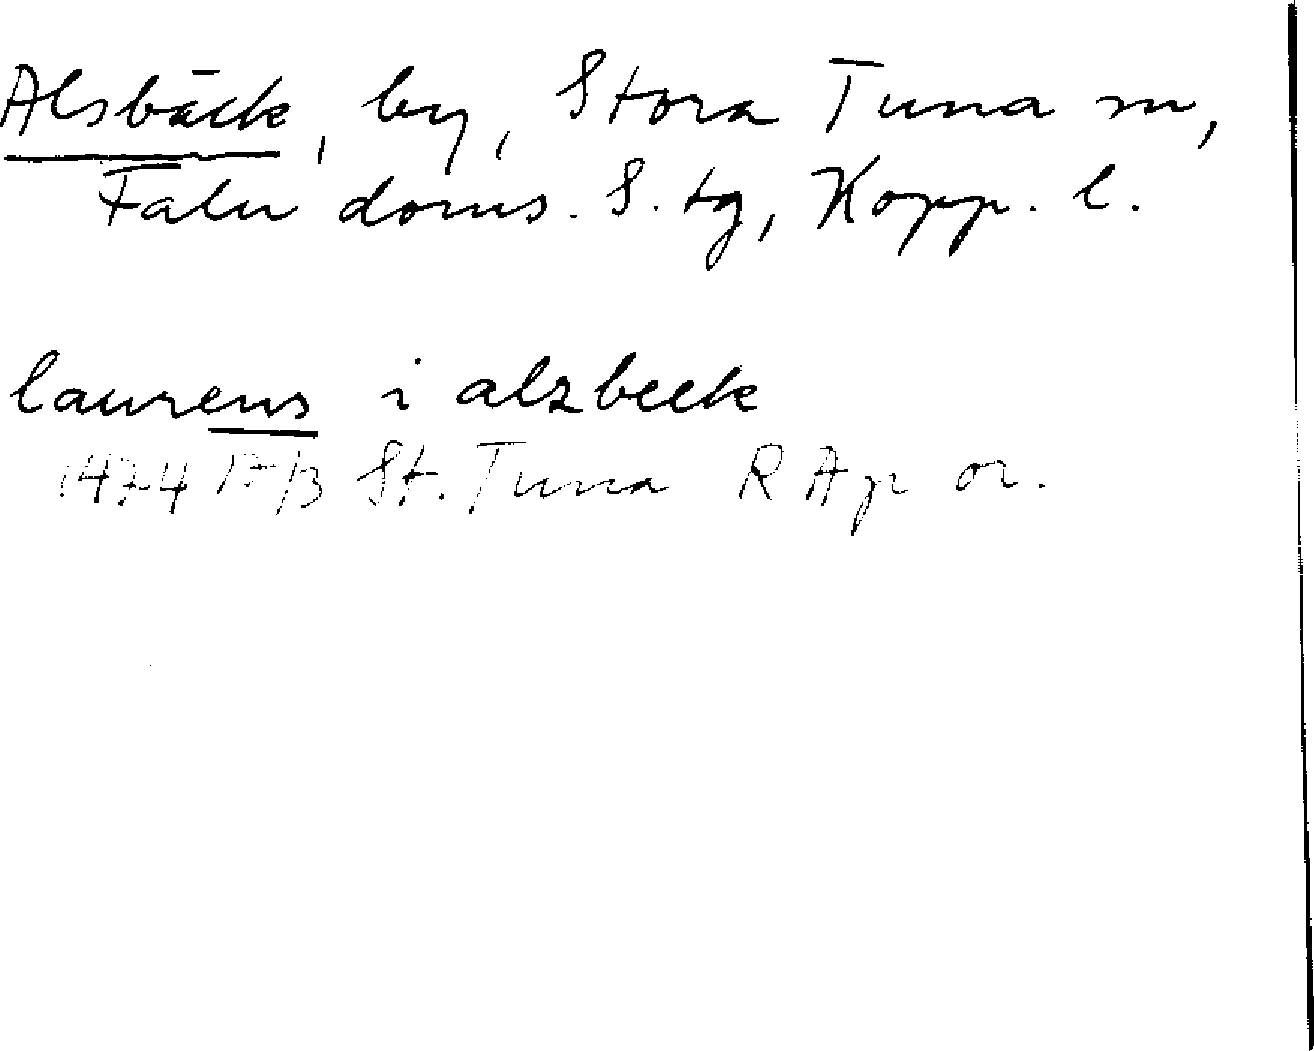 Alsbäck, by, Stora Tuna sn,
Falu doms. S. tg, Kopp. l.
laurens i alzbeck
1474 17/3 St. Tuna RAp or.